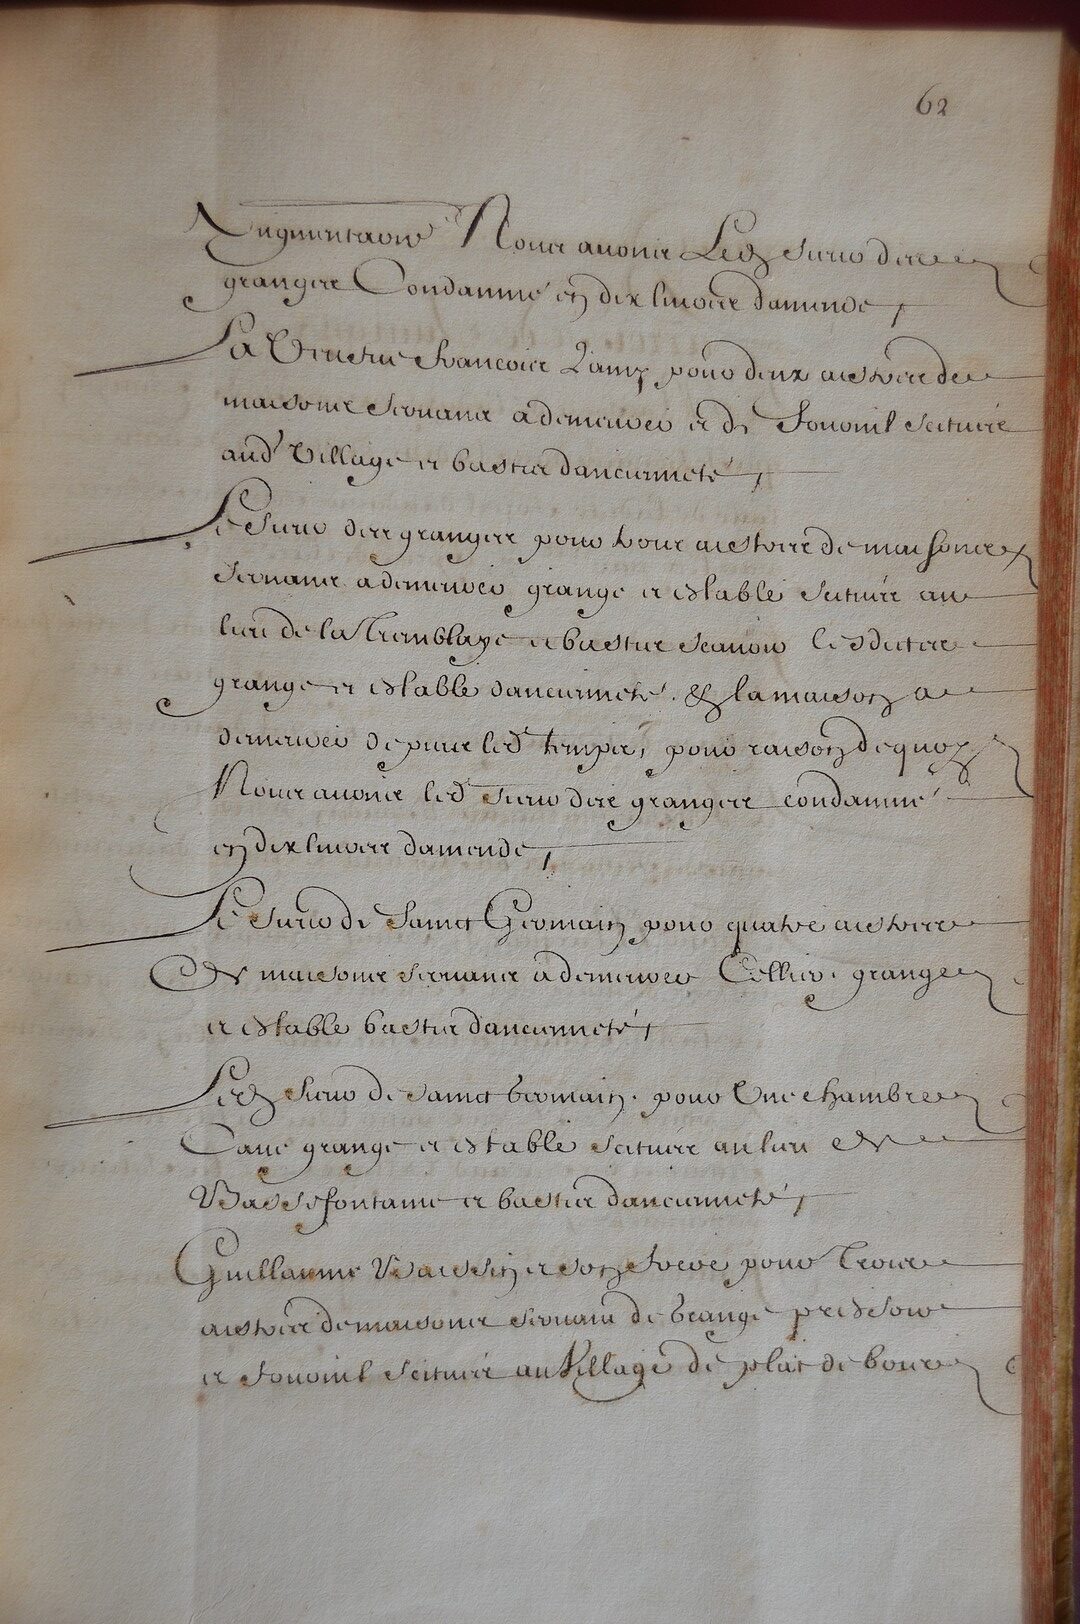 62
Augmentaon Nous auons Led sieur des
granges Condamné en dix liures damende,
La Veufue francois Lamy pour deux astres de
maisons seruans a demeurer et de fournil scituée
aud Village et bastis dancienneté,
Le sieur des granges pour trois astres de maisons
seruans a demeurer grange et estable scituée au
lieu de la tremblaye et bastis scauoir lesdictes
grange et estable dancienneté. & la maison a
demeurer depuis led temps, pour raison dequoy
Nous auons led sieur des granges condamné
en dix liures damende,
Le sieur de Sainct Germain pour quatre astres
de maisons seruans a demeurer Cellier, grange
et estable bastis dancienneté,
Led sieur de sainct Germain. pour Vne chambre
Caue grange et estable scituée au lieu de
Bassefontaine et bastis dancienneté,
Guillaume et son frere pour trois
astres de maisons seruant de grange pressoir
et fournil scituée au Village de plat de bours